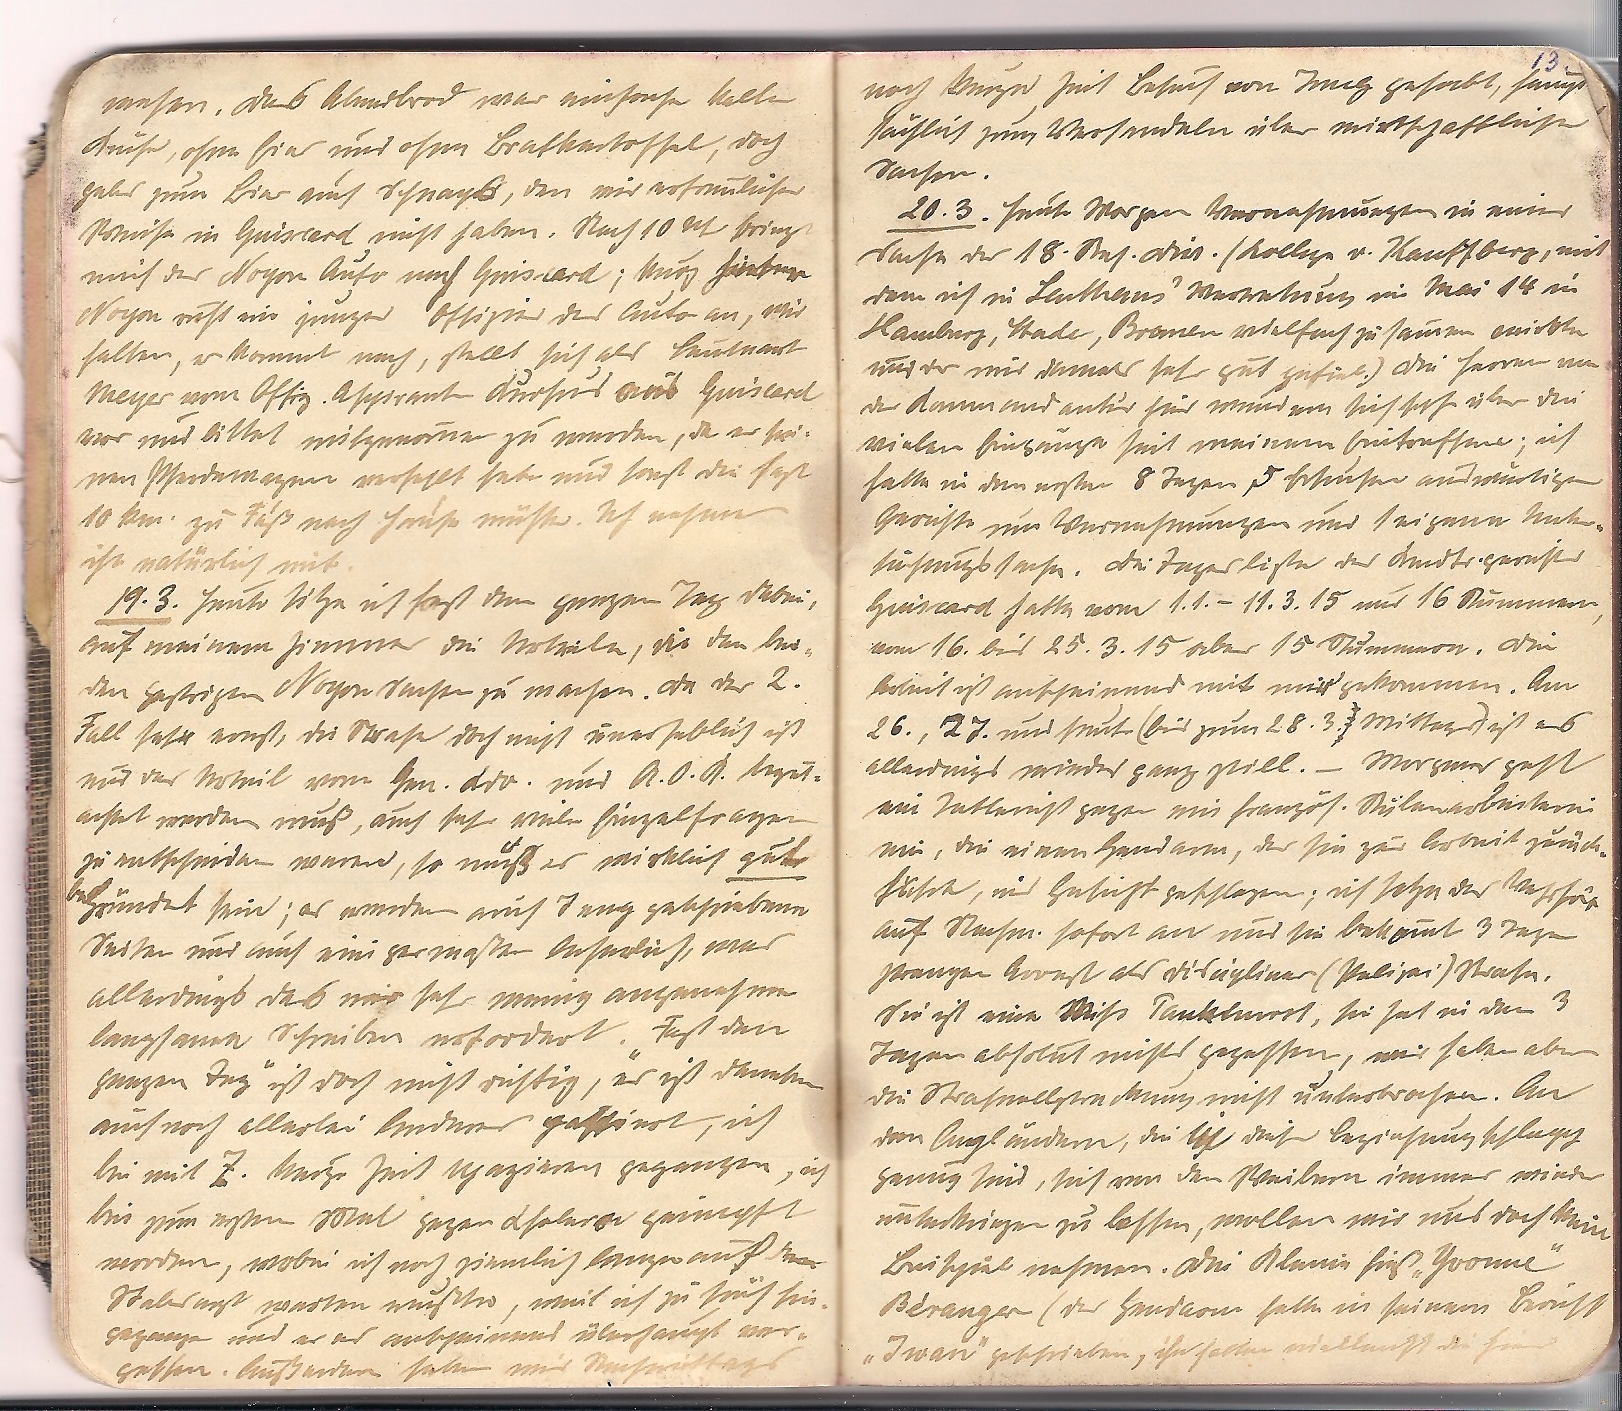 waren. Das Abendbrod war einfache kalte
Küche, ohne Eier und ohne Bratkartoffel, doch
gabs zum Bier auch Schnaps, den wir erfreulicher
Weise in Guiscard nicht haben. Nach 10 Uhr bringt
mich das Noyon Auto nach Guiscard; kurz hinter
Noyon ruft ein junger Offizier das Auto an, wir
halten, er kommt nach, stellt sich als Leutnant
Meyer vom Offiz. Aspiranten Kursus aus Guiscard
vor und bittet mitgenommen zu werden, da er sei-
nen Pferdewagen verfehlt habe und sonst die fast
10 km. zu Fuß nach Hause müsste. Ich nehme
ihn natürlich mit.
19.3. Heute sitze ich fast den ganzen Tag dabei,
auf meinem Zimmer die Urteile, die den bei-
den gestrigen Noyon Sachen zu machen. Da der 2.
Fall sehr ernst, die Strafe doch nicht unerheblich ist
und das Urteil vom Gen. Kdo. und A.O.K. begut-
achtet werden muß, auch sehr viele Einzelfragen
zu entscheiden waren, so muß es wirklich gut
begründet sein; es werden auch 7 eng geschriebene
Seiten und auch einigermaßen leserlich, was
allerdings das mir sehr wenig angenehme
langsame Schreiben erfordert. "Fast den
ganzen Tag" ist doch nicht richtig, es ist daneben
auch noch allerlei Anderes passiert, ich
bin mit Z. kurze Zeit spazieren gegangen, ich
bin zum ersten Mal gegen Cholera geimpft
worden, wobei ich noch ziemlich lange auf den
Stabsarzt warten mußte, weil ich zu früh hin-
gegangen und er es anscheinend überhaupt ver-
gessen. Außerdem haben wir Nachmittags
13.
noch kurze Zeit Besuch von gehabt, haupt
sächlich zum Verhandeln über wirtschaftliche
Sachen.
20.3. Heute Morgen Vernehmungen in einer
Sache der 18. Res. Div. (Kollege v. Kauffberg, mit
dem ich in Vertretung im Mai 14 in
Hamburg, Stade, Bremen vielfach zusammen wirkte
und der mir damals sehr gut gefiel.) Die Herren von
der Kommandantur hier wundern sich sehr über die
vielen Eingänge seit meinem Eintreffen; ich
hatte in den ersten 8 Tagen 5 Ersuchen auswärtiger
Gerichte um Vernehmungen und 1 eigene Unter-
suchungssache. Die Tagesliste des Kmdtr.gerichts
Guiscard hatte vom 1.1. - 11.3.15 nur 16 Nummern,
vom 16. bis 25.3.15 aber 15 Nummern. Die
Arbeit ist anscheinend mit mir gekommen. Am
26., 27. und heute (bis zum 28.3. Mittags) ist es
allerdings wieder ganz still. — Morgens geht
ein Tatbericht gegen eine französ. Rübenarbeiterin
ein, die einen Gendarm, der sie zur Arbeit zurück-
führte, ins Gesicht geschlagen; ich setze das Verhör
auf Nachm. sofort an und sie bekommt 3 Tage
strengen Arrest als disciplinar (Polizei) Strafe.
Sie ist eine Miß Pankhurst, sie hat in den 3
Tagen absolut nichts gegessen, wir haben aber
die Strafvollstreckung nicht unterbrochen. An
den Engländern, die in dieser Beziehung schlapp
genug sind, sich von den Weibern immer wieder
unterkriegen zu lassen, wollen wir uns doch kein
Beispiel nehmen. Die Kleine hieß "Yvonne"
Béranger (der Gendarm hatte in seinem Bericht
"Iwan" geschrieben, ihn hatten vielleicht die